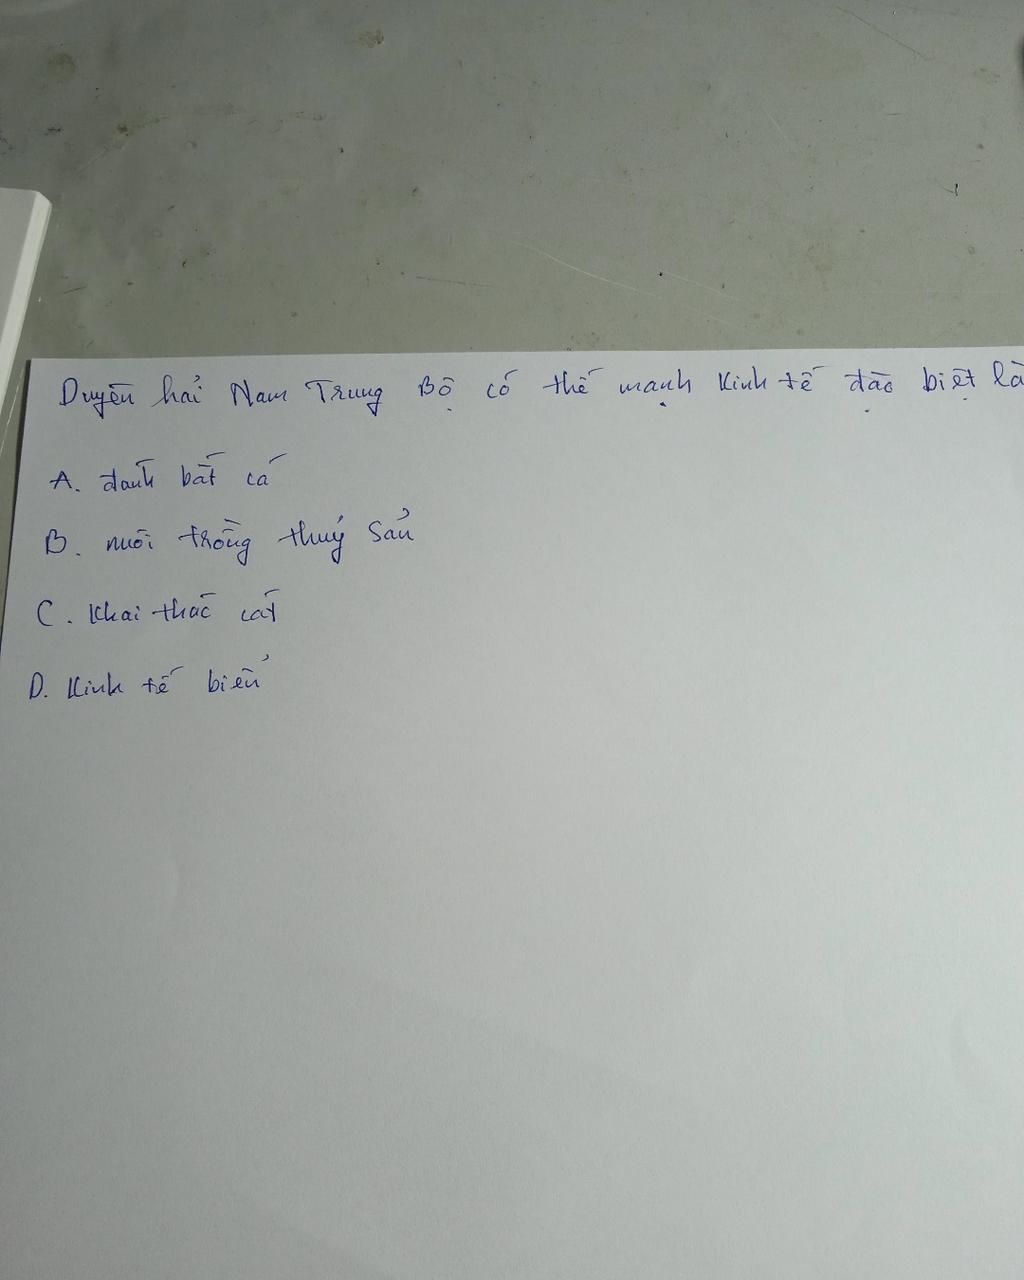 Duyên hải Nam Trung Bộ có thế mạnh kinh tế đặc biệt là
A. đánh bắt cá
B. nuôi trồng thuỷ sản
C. khai thác cát
D. kinh tế biển